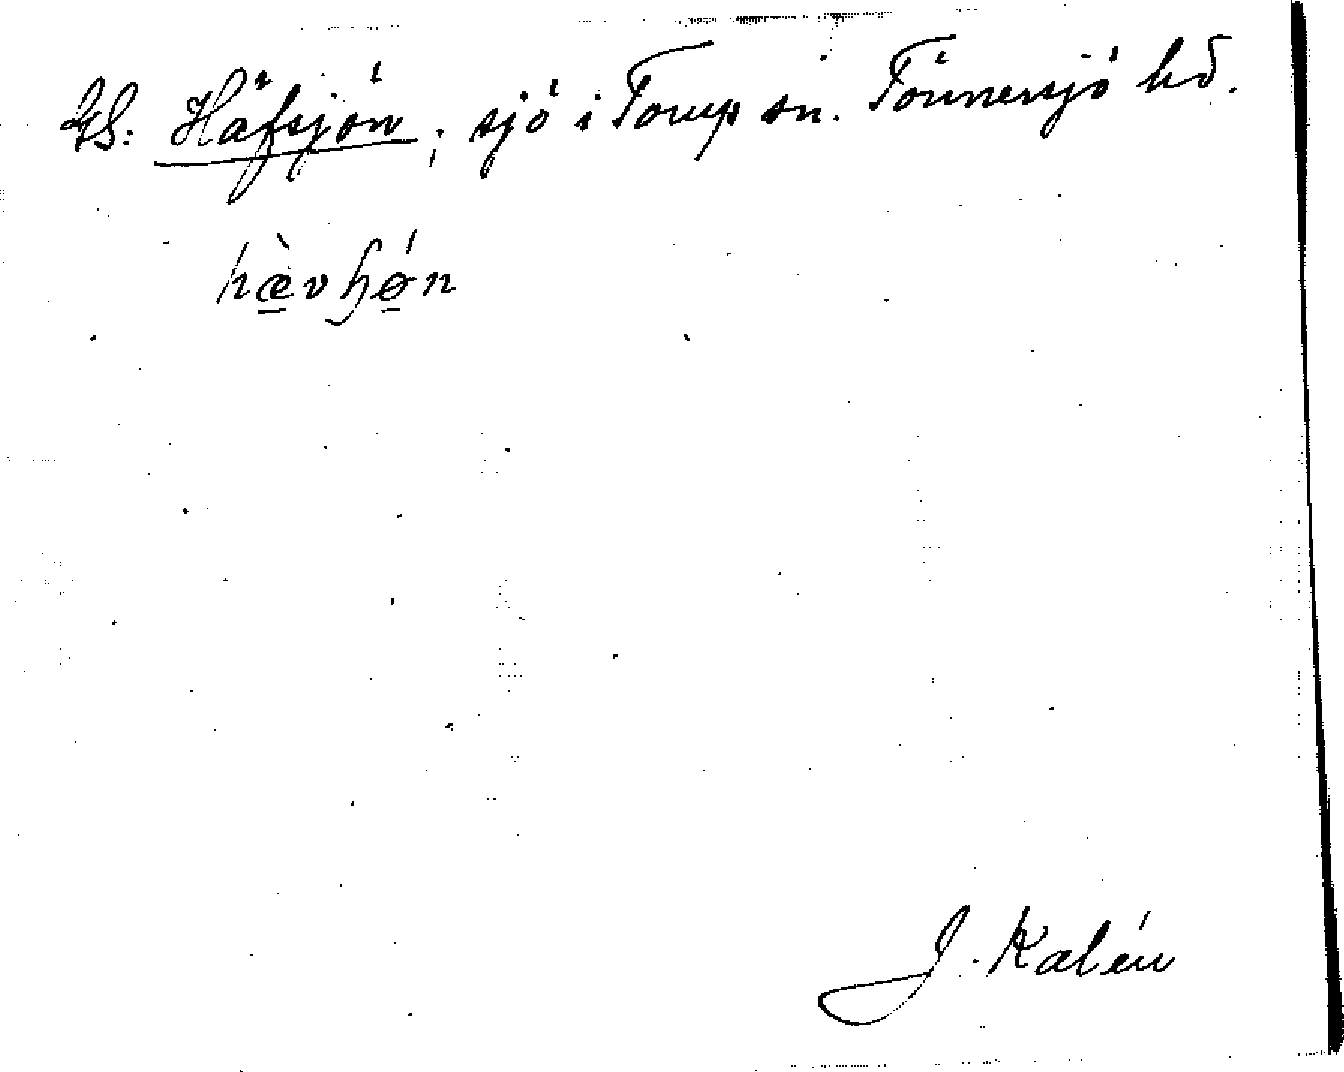 GS: Häfsjön; sjö i Torup sn. Tönnersjö hd.
hæ̀vɧøn
J. Kalén